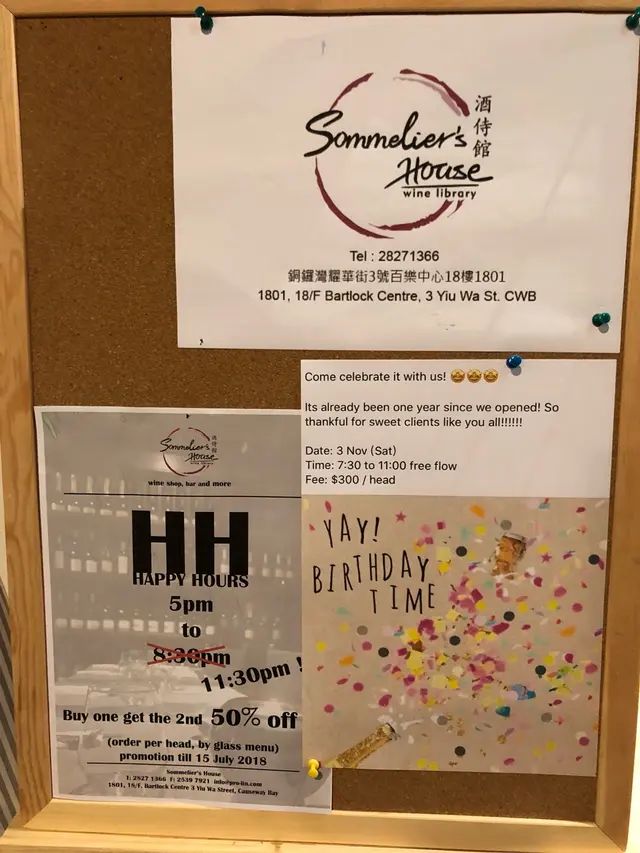 Sommelier's
House
wine library
酒侍館
Tel : 28271366
銅鑼灣耀華街3號百樂中心18樓1801
1801, 18/F Bartlock Centre, 3 Yiu Wa St. CWB
Come celebrate it with us! 🤩🤩🤩
Its already been one year since we opened! So
thankful for sweet clients like you all!!!!!!
Date: 3 Nov (Sat)
Time: 7:30 to 11:00 free flow
Fee: $300 / head
YAY!
BIRTHDAY
TIME
Sommelier's
House
酒侍館
wine library
wine shop, bar and more
HH
HAPPY HOURS
5pm
to
8:30pm
11:30pm !
Buy one get the 2nd 50% off
(order per head, by glass menu)
promotion till 15 July 2018
Sommelier's House
T: 2827 1366 F: 2539 7921 info@pro-lin.com
1801, 18/F, Bartlock Centre 3 Yiu Wa Street, Causeway Bay